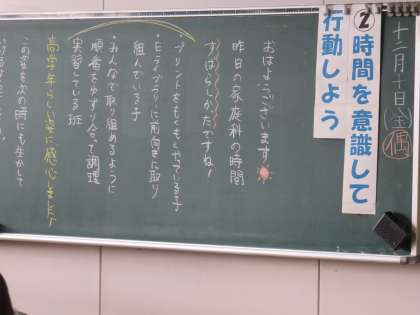 十二月十日(金)
偶
②時間を意識して
行動しよう
おはようございます
昨日の家庭科の時間
すばらしかったですね!
・プリントをもくもくやっている子
・ミシンに前向きに取り
組んでいる子
・みんなで取り組めるように
順番をゆずり合って調理
実習している班
高学年らしい姿に感心しました!
この姿を次の時にも生かして